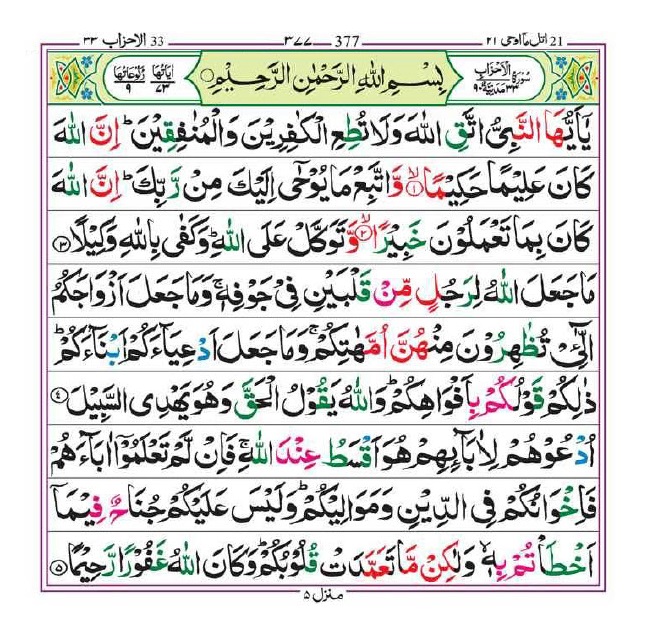 اتل مآ اوحی ۲۱ 21 377 ۳۷۷ الاحزاب ۳۳ 33
سُوْرَةُ الْاَحْزَابِ ۳۳ مَدَنِيَّةٌ ۹۰ بِسْمِ اللّٰهِ الرَّحْمٰنِ الرَّحِيْمِ۝ اٰيَاتُهَا ۷۳ رُكُوْعَاتُهَا ۹
يٰۤاَيُّهَا النَّبِيُّ اتَّقِ اللّٰهَ وَلَا تُطِعِ الْكٰفِرِيْنَ وَالْمُنٰفِقِيْنَ ؕ اِنَّ اللّٰهَ
كَانَ عَلِيْمًا حَكِيْمًا ۙ‏﴿۱﴾ وَّاتَّبِعْ مَا يُوْحٰۤى اِلَيْكَ مِنْ رَّبِّكَ ؕ اِنَّ اللّٰهَ
كَانَ بِمَا تَعْمَلُوْنَ خَبِيْرًا ۙ‏﴿۲﴾ وَّتَوَكَّلْ عَلَى اللّٰهِ ؕ وَكَفٰى بِاللّٰهِ وَكِيْلًا ﴿۳﴾
مَا جَعَلَ اللّٰهُ لِرَجُلٍ مِّنْ قَلْبَيْنِ فِيْ جَوْفِهٖ ۚ وَمَا جَعَلَ اَزْوَاجَكُمُ
الّٰٓـئِْ تُظٰهِرُوْنَ مِنْهُنَّ اُمَّهٰتِكُمْ ۚ وَمَا جَعَلَ اَدْعِيَآءَكُمْ اَبْنَآءَكُمْ ؕ
ذٰلِكُمْ قَوْلُكُمْ بِاَفْوَاهِكُمْ ؕ وَاللّٰهُ يَقُوْلُ الْحَقَّ وَهُوَ يَهْدِى السَّبِيْلَ ﴿۴﴾
اُدْعُوْهُمْ لِاٰبَآئِهِمْ هُوَ اَقْسَطُ عِنْدَ اللّٰهِ ۚ فَاِنْ لَّمْ تَعْلَمُوْۤا اٰبَآءَهُمْ
فَاِخْوَانُكُمْ فِى الدِّيْنِ وَمَوَالِيْكُمْ ؕ وَلَيْسَ عَلَيْكُمْ جُنَاحٌ فِيْمَاۤ
اَخْطَاْتُمْ بِهٖ ۙ وَلٰكِنْ مَّا تَعَمَّدَتْ قُلُوْبُكُمْ ؕ وَكَانَ اللّٰهُ غَفُوْرًا رَّحِيْمًا ﴿۵﴾
منزل ۵